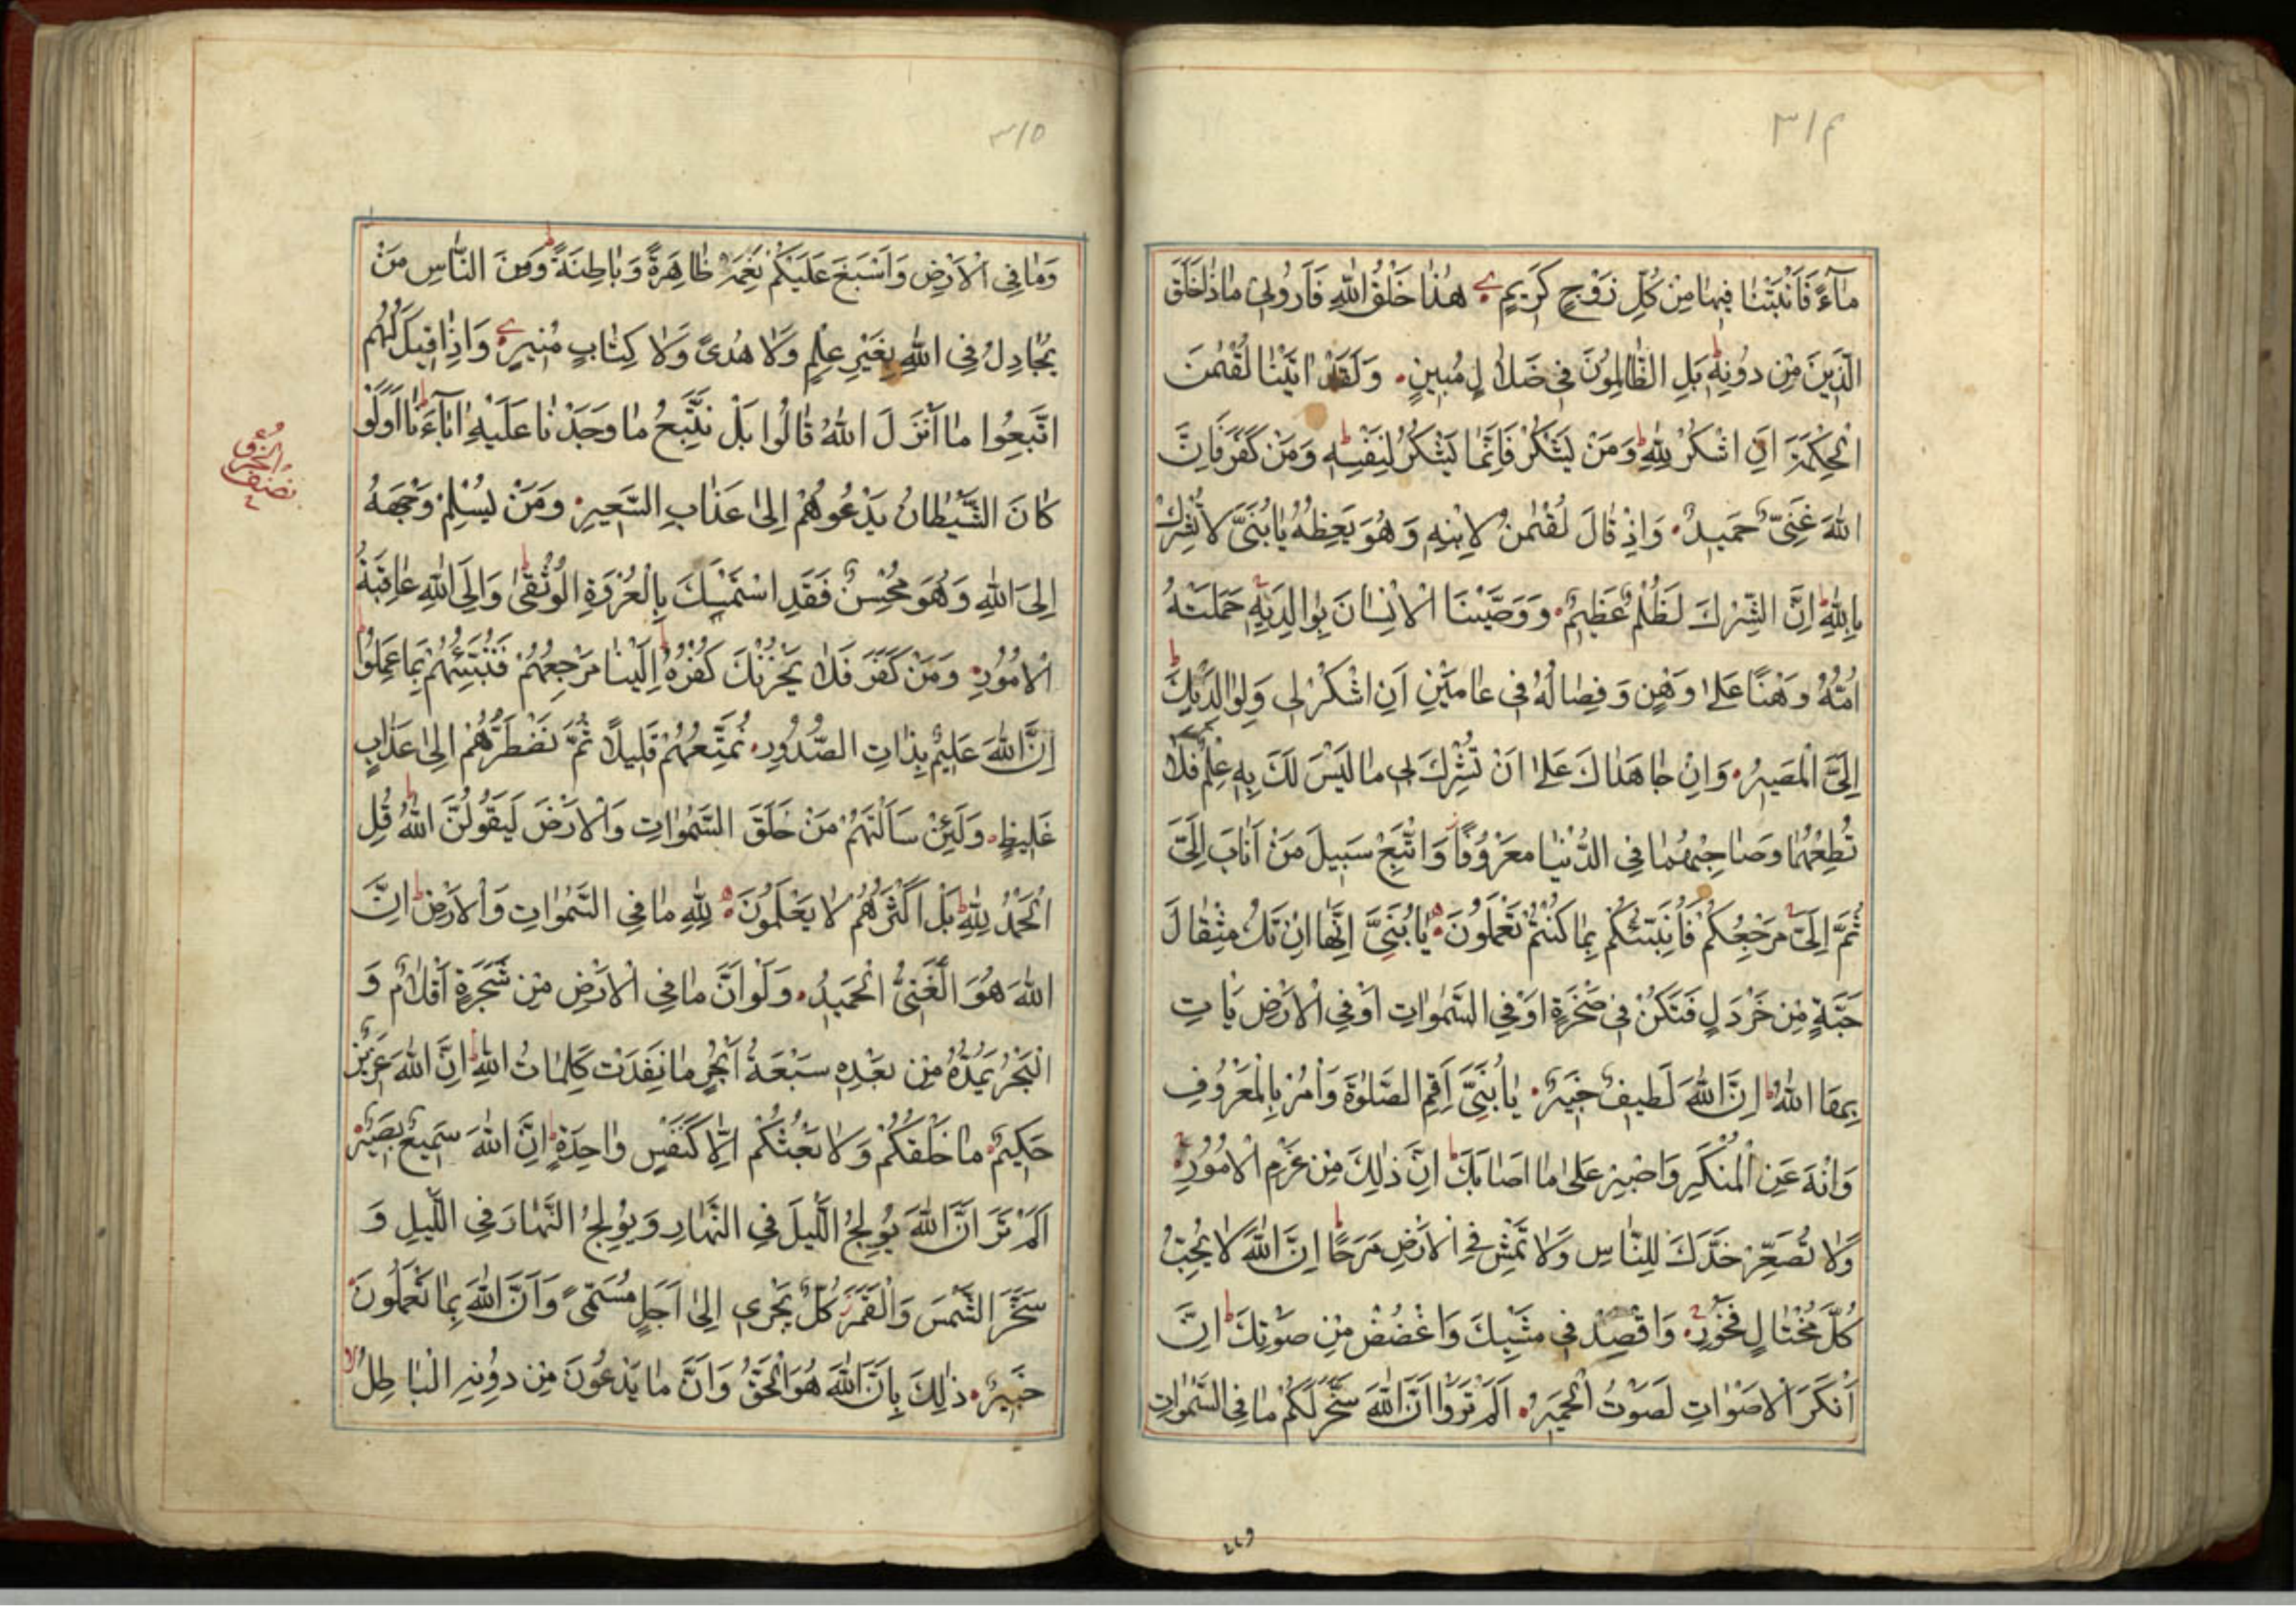 ٣١٤
مَآءً فَاَنْبَتْنَا فِيهَا مِنْ كُلِّ زَوْجٍ كَرِيمٍ هٰذَا خَلْقُ اللّٰهِ فَاَرُونِي مَاذَا خَلَقَ
الَّذِينَ مِنْ دُونِهِ بَلِ الظَّالِمُونَ فِي ضَلَالٍ مُبِينٍ وَلَقَدْ اٰتَيْنَا لُقْمٰنَ
الْحِكْمَةَ اَنِ اشْكُرْ لِلّٰهِ وَمَنْ يَشْكُرْ فَاِنَّمَا يَشْكُرُ لِنَفْسِهِ وَمَنْ كَفَرَ فَاِنَّ
اللّٰهَ غَنِيٌّ حَمِيدٌ وَاِذْ قَالَ لُقْمٰنُ لِابْنِهِ وَهُوَ يَعِظُهُ يَابُنَيَّ لَا تُشْرِكْ
بِاللّٰهِ اِنَّ الشِّرْكَ لَظُلْمٌ عَظِيمٌ وَوَصَّيْنَا الْاِنْسَانَ بِوَالِدَيْهِ حَمَلَتْهُ
اُمُّهُ وَهْنًا عَلٰى وَهْنٍ وَفِصَالُهُ فِي عَامَيْنِ اَنِ اشْكُرْ لِي وَلِوَالِدَيْكَ
اِلَيَّ الْمَصِيرُ وَاِنْ جَاهَدَاكَ عَلٰى اَنْ تُشْرِكَ بِي مَا لَيْسَ لَكَ بِهِ عِلْمٌ فَلَا
تُطِعْهُمَا وَصَاحِبْهُمَا فِي الدُّنْيَا مَعْرُوفًا وَاتَّبِعْ سَبِيلَ مَنْ اَنَابَ اِلَيَّ
ثُمَّ اِلَيَّ مَرْجِعُكُمْ فَاُنَبِّئُكُمْ بِمَا كُنْتُمْ تَعْمَلُونَ يَابُنَيَّ اِنَّهَا اِنْ تَكُ مِثْقَالَ
حَبَّةٍ مِنْ خَرْدَلٍ فَتَكُنْ فِي صَخْرَةٍ اَوْ فِي السَّمٰوَاتِ اَوْ فِي الْاَرْضِ يَاْتِ
بِهَا اللّٰهُ اِنَّ اللّٰهَ لَطِيفٌ خَبِيرٌ يَابُنَيَّ اَقِمِ الصَّلٰوةَ وَاْمُرْ بِالْمَعْرُوفِ
وَانْهَ عَنِ الْمُنْكَرِ وَاصْبِرْ عَلٰى مَا اَصَابَكَ اِنَّ ذٰلِكَ مِنْ عَزْمِ الْاُمُورِ
وَلَا تُصَعِّرْ خَدَّكَ لِلنَّاسِ وَلَا تَمْشِ فِي الْاَرْضِ مَرَحًا اِنَّ اللّٰهَ لَا يُحِبُّ
كُلَّ مُخْتَالٍ فَخُورٍ وَاقْصِدْ فِي مَشْيِكَ وَاغْضُضْ مِنْ صَوْتِكَ اِنَّ
اَنْكَرَ الْاَصْوَاتِ لَصَوْتُ الْحَمِيرِ اَلَمْ تَرَوْا اَنَّ اللّٰهَ سَخَّرَ لَكُمْ مَا فِي السَّمٰوَاتِ
٣١٥
وَمَا فِي الْاَرْضِ وَاَسْبَغَ عَلَيْكُمْ نِعَمَهُ ظَاهِرَةً وَبَاطِنَةً وَمِنَ النَّاسِ مَنْ
يُجَادِلُ فِي اللّٰهِ بِغَيْرِ عِلْمٍ وَلَا هُدًى وَلَا كِتَابٍ مُنِيرٍ وَاِذَا قِيلَ لَهُمُ
اتَّبِعُوا مَا اَنْزَلَ اللّٰهُ قَالُوا بَلْ نَتَّبِعُ مَا وَجَدْنَا عَلَيْهِ اٰبَآءَنَا اَوَلَوْ
كَانَ الشَّيْطَانُ يَدْعُوهُمْ اِلٰى عَذَابِ السَّعِيرِ وَمَنْ يُسْلِمْ وَجْهَهُ
اِلَى اللّٰهِ وَهُوَ مُحْسِنٌ فَقَدِ اسْتَمْسَكَ بِالْعُرْوَةِ الْوُثْقٰى وَاِلَى اللّٰهِ عَاقِبَةُ
الْاُمُورِ وَمَنْ كَفَرَ فَلَا يَحْزُنْكَ كُفْرُهُ اِلَيْنَا مَرْجِعُهُمْ فَنُنَبِّئُهُمْ بِمَا عَمِلُوا
اِنَّ اللّٰهَ عَلِيمٌ بِذَاتِ الصُّدُورِ نُمَتِّعُهُمْ قَلِيلًا ثُمَّ نَضْطَرُّهُمْ اِلٰى عَذَابٍ
غَلِيظٍ وَلَئِنْ سَاَلْتَهُمْ مَنْ خَلَقَ السَّمٰوَاتِ وَالْاَرْضَ لَيَقُولُنَّ اللّٰهُ قُلِ
الْحَمْدُ لِلّٰهِ بَلْ اَكْثَرُهُمْ لَا يَعْلَمُونَ لِلّٰهِ مَا فِي السَّمٰوَاتِ وَالْاَرْضِ اِنَّ
اللّٰهَ هُوَ الْغَنِيُّ الْحَمِيدُ وَلَوْ اَنَّ مَا فِي الْاَرْضِ مِنْ شَجَرَةٍ اَقْلَامٌ وَ
الْبَحْرُ يَمُدُّهُ مِنْ بَعْدِهِ سَبْعَةُ اَبْحُرٍ مَا نَفِدَتْ كَلِمَاتُ اللّٰهِ اِنَّ اللّٰهَ عَزِيزٌ
حَكِيمٌ مَا خَلْقُكُمْ وَلَا بَعْثُكُمْ اِلَّا كَنَفْسٍ وَاحِدَةٍ اِنَّ اللّٰهَ سَمِيعٌ بَصِيرٌ
اَلَمْ تَرَ اَنَّ اللّٰهَ يُولِجُ الَّيْلَ فِي النَّهَارِ وَيُولِجُ النَّهَارَ فِي الَّيْلِ وَ
سَخَّرَ الشَّمْسَ وَالْقَمَرَ كُلٌّ يَجْرِي اِلٰى اَجَلٍ مُسَمًّى وَاَنَّ اللّٰهَ بِمَا تَعْمَلُونَ
خَبِيرٌ ذٰلِكَ بِاَنَّ اللّٰهَ هُوَ الْحَقُّ وَاَنَّ مَا يَدْعُونَ مِنْ دُونِهِ الْبَاطِلُ
نصف الحزب